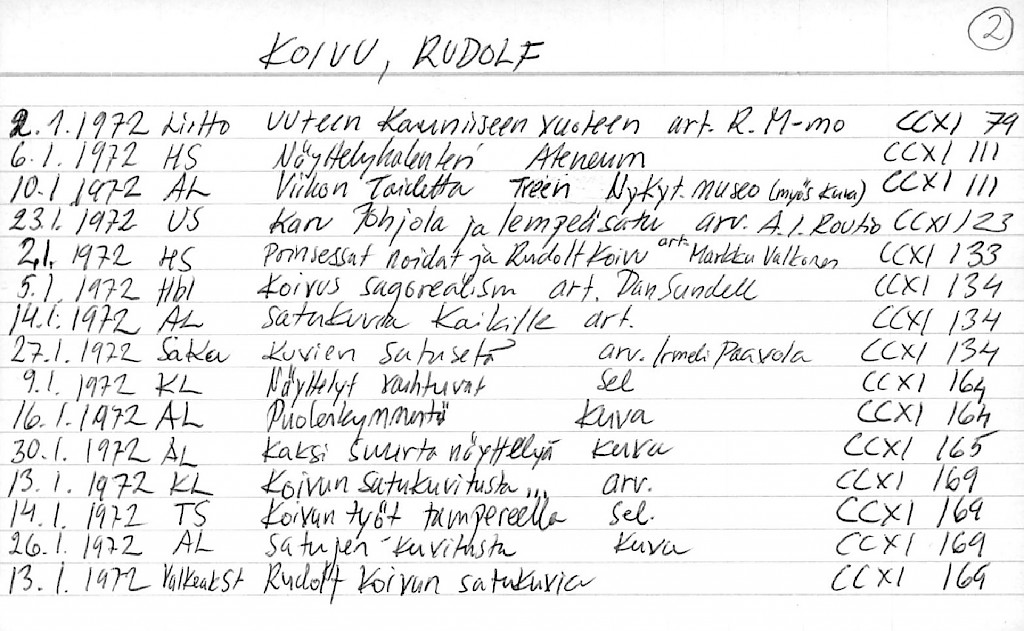 2
KOIVU, RUDOLF
2.1.1972 Liitto Uuteen kauniiseen vuoteen art. R. M-mo CCXI 79
6.1.1972 HS Näyttelykalenteri Ateneum CCXI 111
10.1 1972 AL Viikon taidetta Treen Nykyt. museo (myös kuva) CCXI 111
23.1 1972 US Karu Pohjola ja lempeä satu arv. A.I. Routio CCXI 123
2.1. 1972 HS Prinsessat noidat ja Rudolf Koivu art. Markku Valkonen CCXI 133
5.1. 1972 Hbl Koivus sagorealism art. Dan Sundell CCXI 134
14.1. 1972 AL Satukuvia kaikille art. CCXI 134
27.1. 1972 SaKa Kuvien satusetä arv. Irmeli Paavola CCXI 134
9.1. 1972 KL Näyttelyt vaihtuvat sel CCXI 164
16.1. 1972 AL Puolenkymmentä kuva CCXI 164
30.1. 1972 AL Kaksi suurta näyttelyä kuva CCXI 165
13.1. 1972 KL Koivun satukuvitusta... arv. CCXI 169
14.1. 1972 TS Koivun työt tampereella sel. CCXI 169
26.1. 1972 AL Satujen kuvitusta kuva CCXI 169
13.1. 1972 ValkeakSt Rudolf Koivun satukuvia CCXI 169